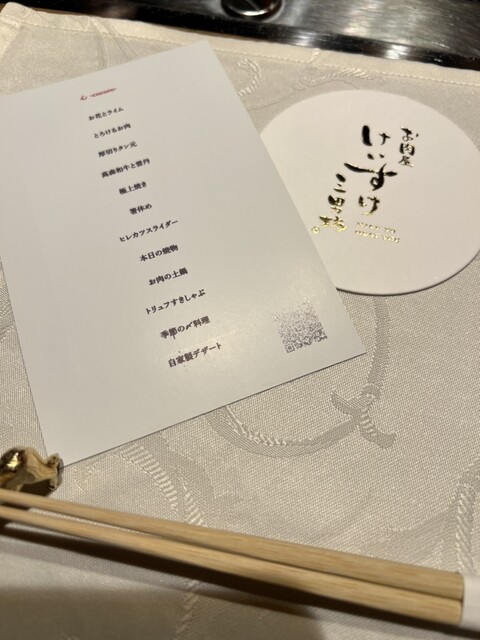 心 -cocoro-
お花とライム
とろけるお肉
厚切りタン元
高森和牛と雲丹
極上焼き
箸休め
ヒレカツスライダー
本日の焼物
お肉の土鍋
トリュフすきしゃぶ
季節の〆料理
自家製デザート
お肉屋
けいすけ
三男坊